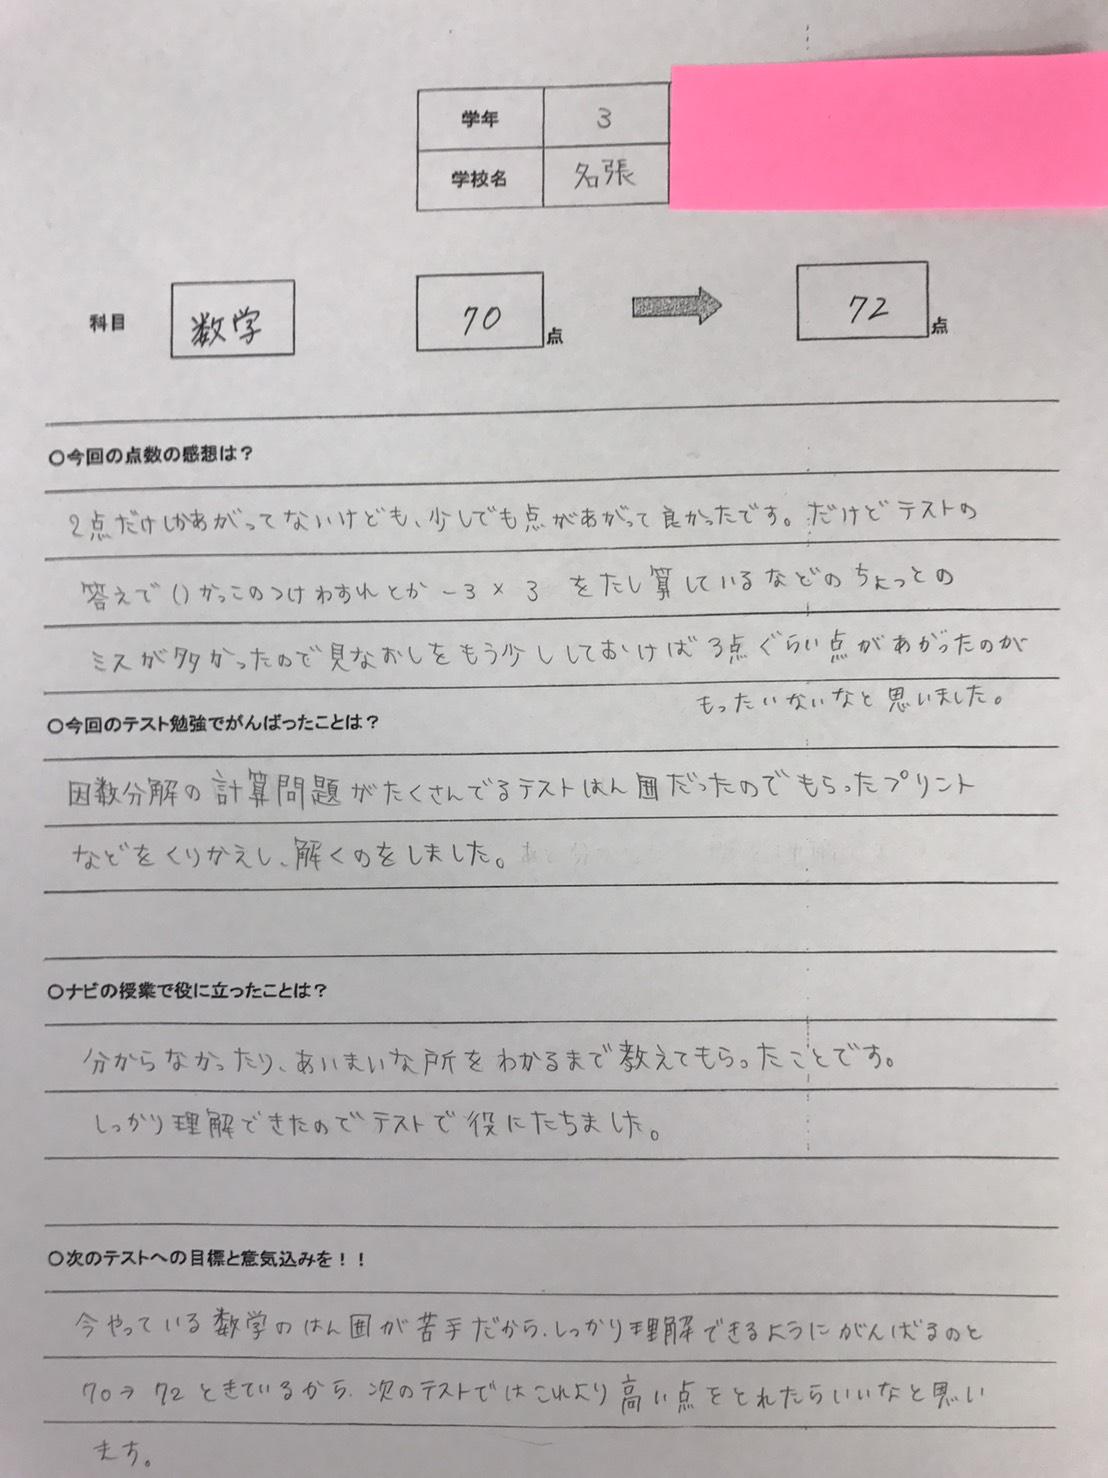 学年 3
学校名 名張
科目 数学 70点 72点
○今回の点数の感想は？
2点だけしかあがってないけども、少しでも点があがって良かったです。だけどテストの
答えで()かっこのつけわすれとか-3×3をたし算しているなどのちょっとの
ミスが多かったので見なおしをもう少ししておけば3点ぐらい点があがったのが
もったいないなと思いました。
○今回のテスト勉強でがんばったことは？
因数分解の計算問題がたくさんでるテストはん囲だったのでもらったプリント
などをくりかえし、解くのをしました。
○ナビの授業で役に立ったことは？
分からなかったり、あいまいな所をわかるまで教えてもらったことです。
しっかり理解できたのでテストで役にたちました。
○次のテストへの目標と意気込みを！！
今やっている数学のはん囲が苦手だから、しっかり理解できるようにがんばるのと
70→72ときているから、次のテストではこれより高い点をとれたらいいなと思い
ます。